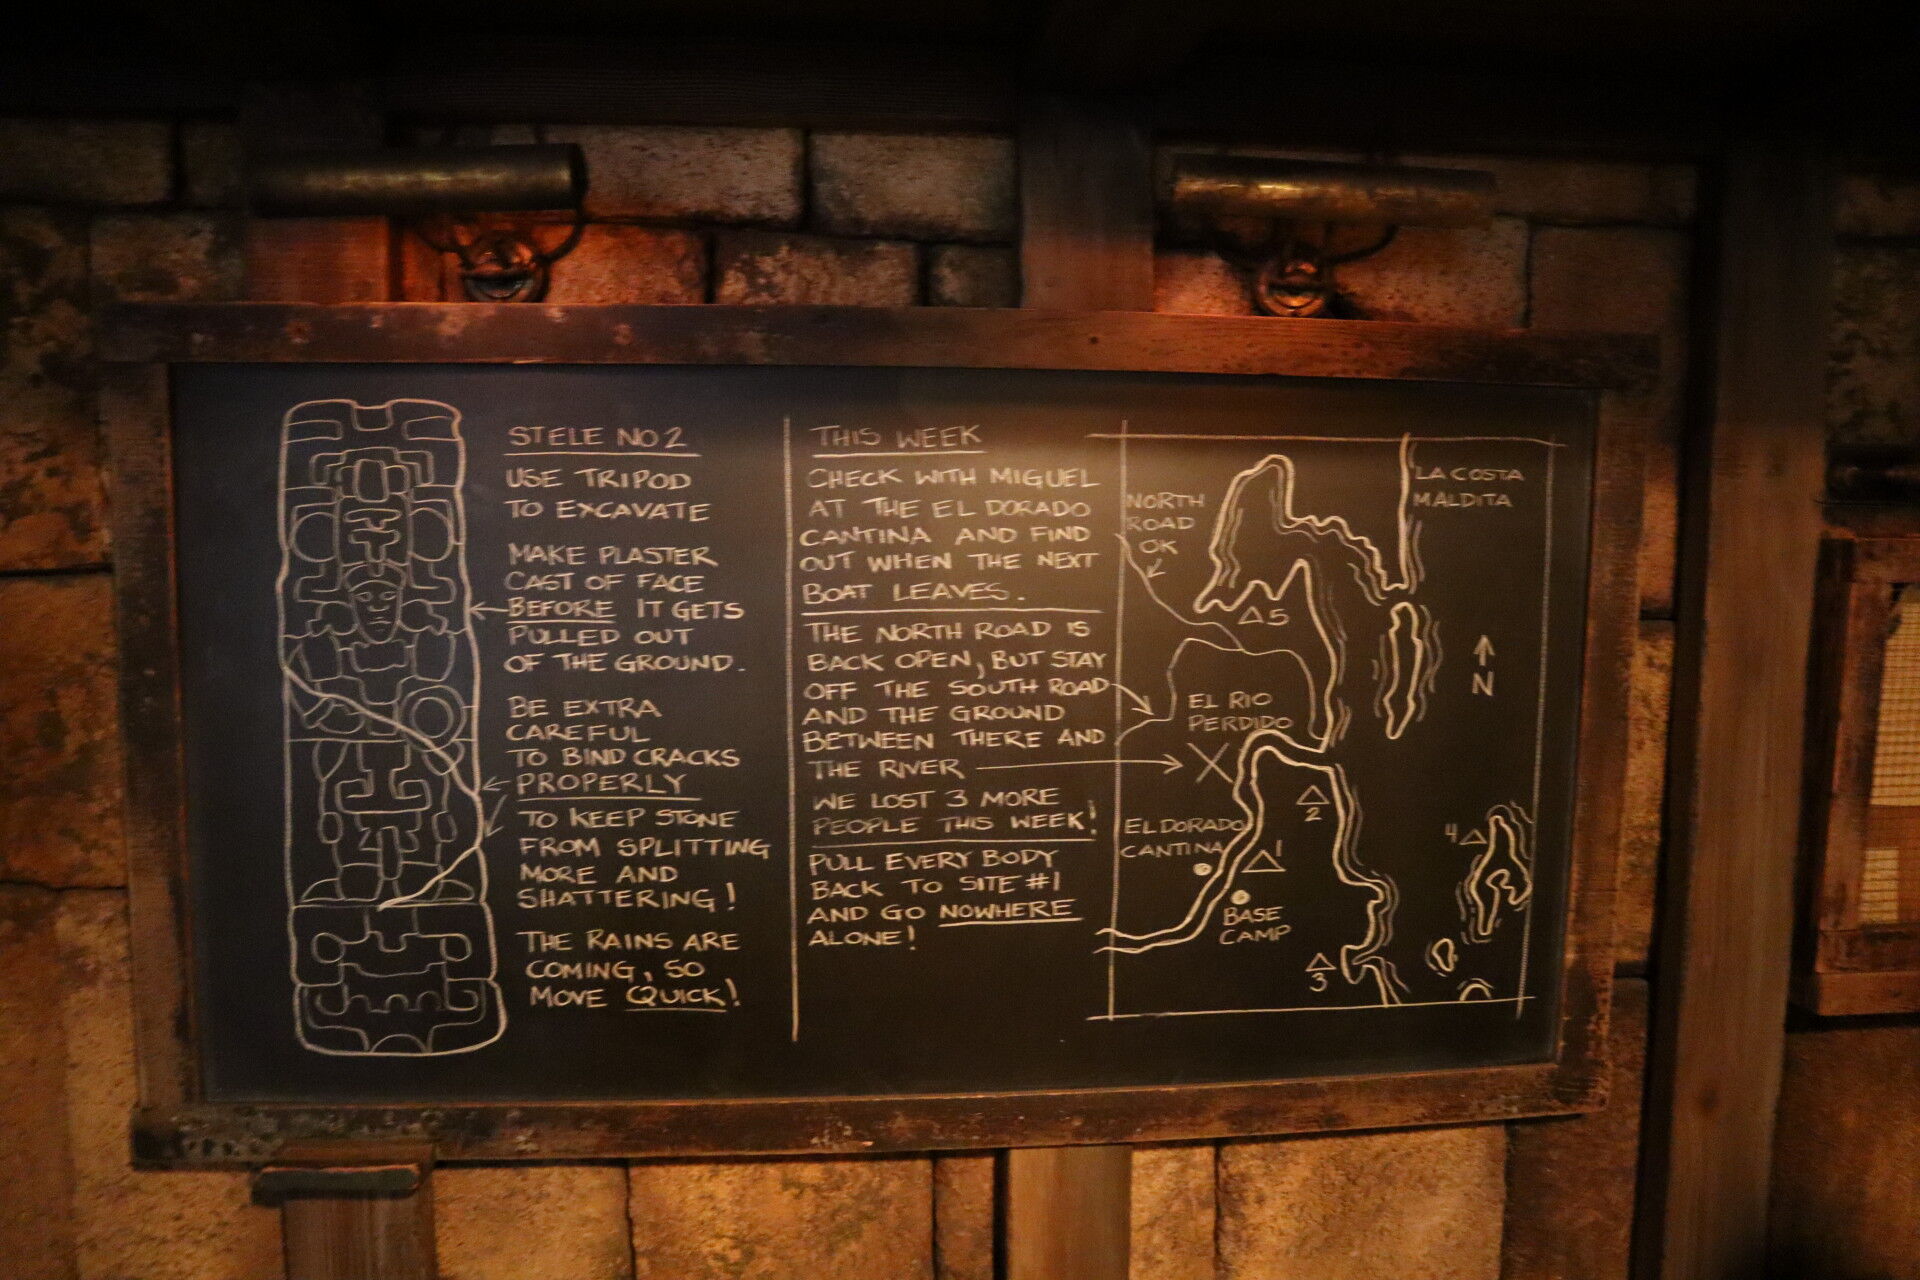 STELE NO 2
USE TRIPOD
TO EXCAVATE
MAKE PLASTER
CAST OF FACE
BEFORE IT GETS
PULLED OUT
OF THE GROUND.
BE EXTRA
CAREFUL
TO BIND CRACKS
PROPERLY
TO KEEP STONE
FROM SPLITTING
MORE AND
SHATTERING!
THE RAINS ARE
COMING, SO
MOVE QUICK!
THIS WEEK
CHECK WITH MIGUEL
AT THE EL DORADO
CANTINA AND FIND
OUT WHEN THE NEXT
BOAT LEAVES.
THE NORTH ROAD IS
BACK OPEN, BUT STAY
OFF THE SOUTH ROAD
AND THE GROUND
BETWEEN THERE AND
THE RIVER
WE LOST 3 MORE
PEOPLE THIS WEEK!
PULL EVERY BODY
BACK TO SITE #1
AND GO NOWHERE
ALONE!
LA COSTA
MALDITA
NORTH
ROAD
OK
5
N
EL RIO
PERDIDO
X
2
EL DORADO
CANTINA
1
4
BASE
CAMP
3